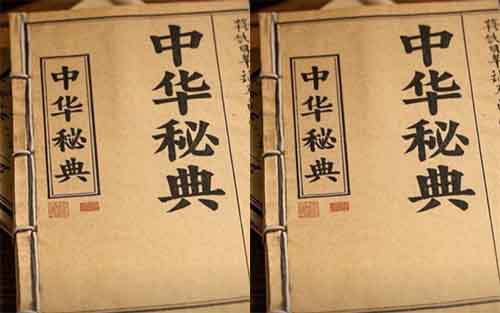 中华秘典
中华秘典
中华秘典
中华秘典